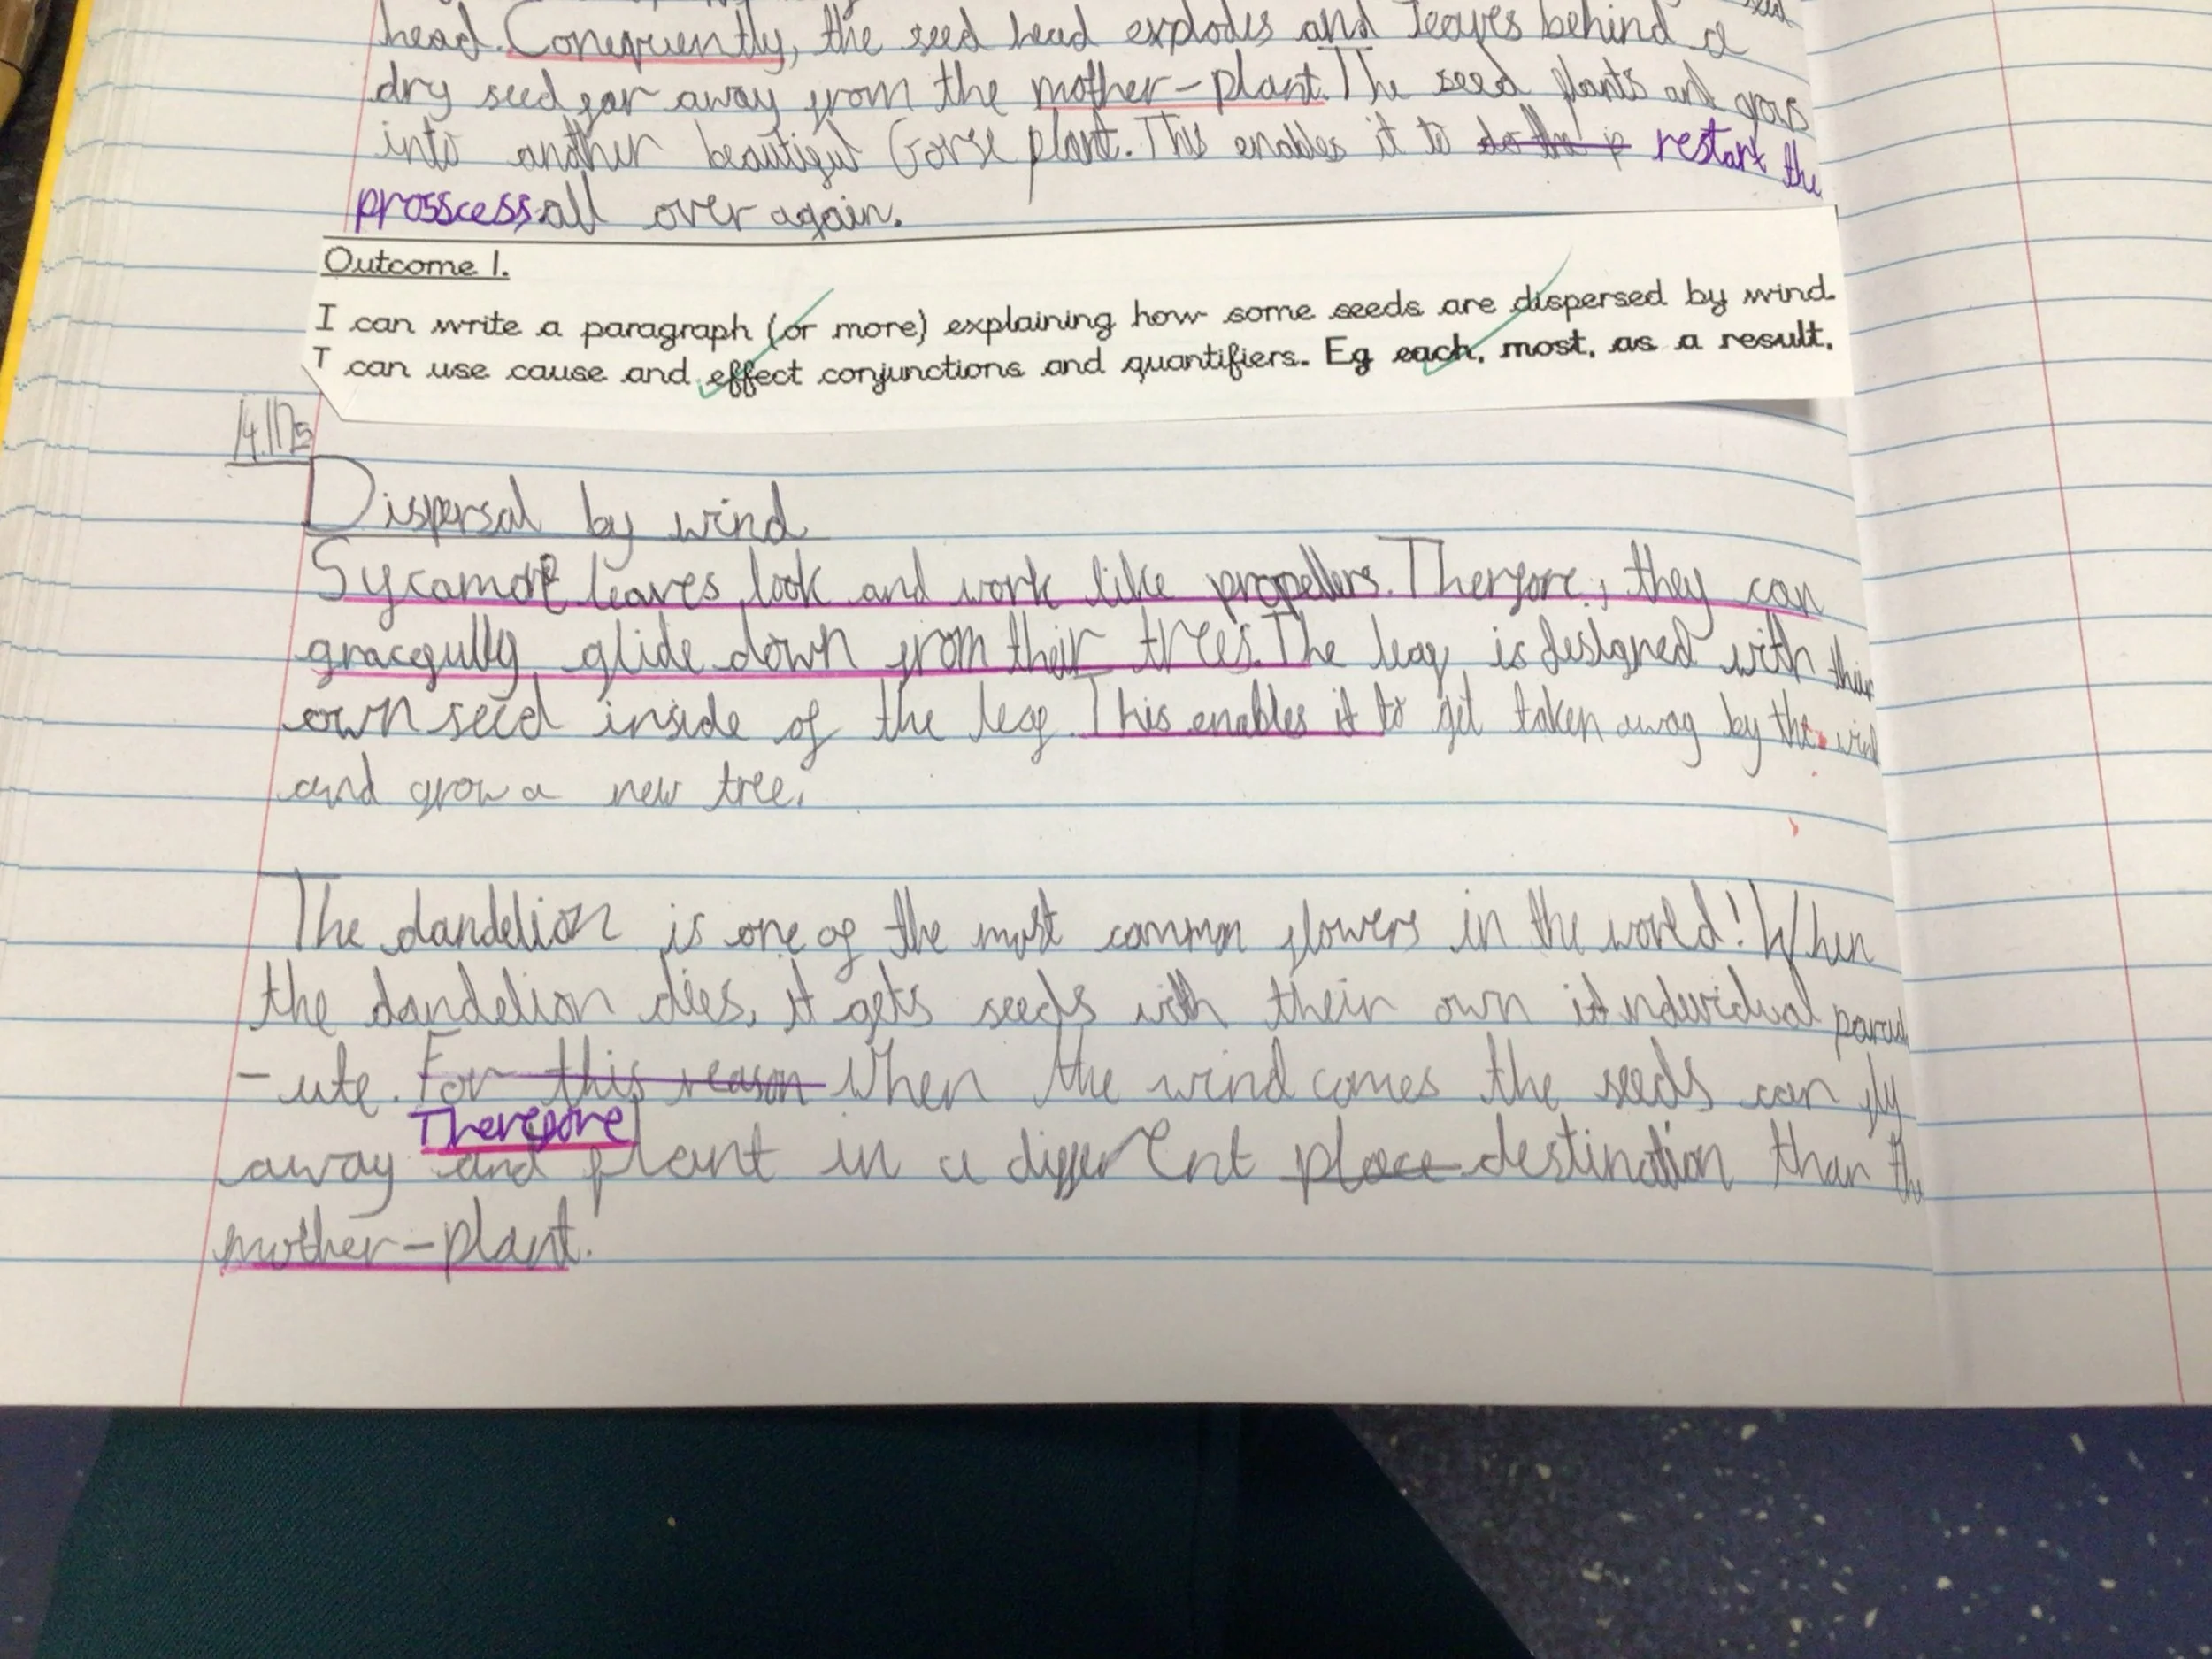 head. Conequently, the seed head explodes and leaves behind a
dry seed far away from the mother-plant. The seed plants and grows
into another beautiful Gorse plant. This enables it to restart the
prosscess all over again.
Outcome 1.
I can write a paragraph (or more) explaining how some seeds are dispersed by wind.
I can use cause and effect conjunctions and quantifiers. Eg each, most, as a result,
Dispersal by wind
Sycamore leaves look and work like propellers. Therfore, they can
gracefully glide down from their trees. The leaf is designed with their
own seed inside of the leaf. This enables it to get taken away by the wind
and grow a new tree.
The dandelion is one of the most common flowers in the world! When
the dandelion dies, it gets seeds with their own individual parach
-ute. For this reason When the wind comes the seeds can fly
Therefore
away and plant in a different place destination than the
mother-plant.